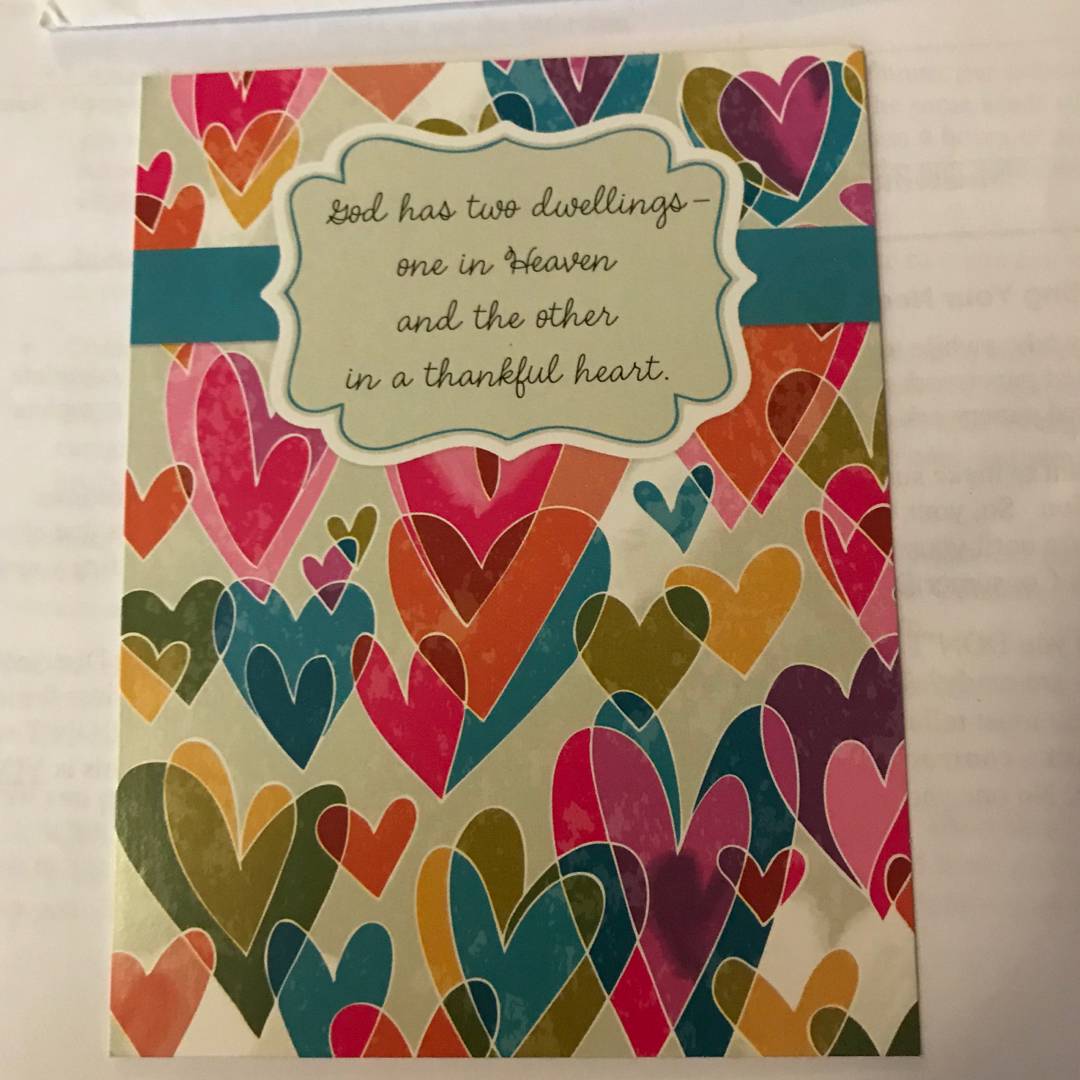 God has two dwellings–
one in Heaven
and the other
in a thankful heart.